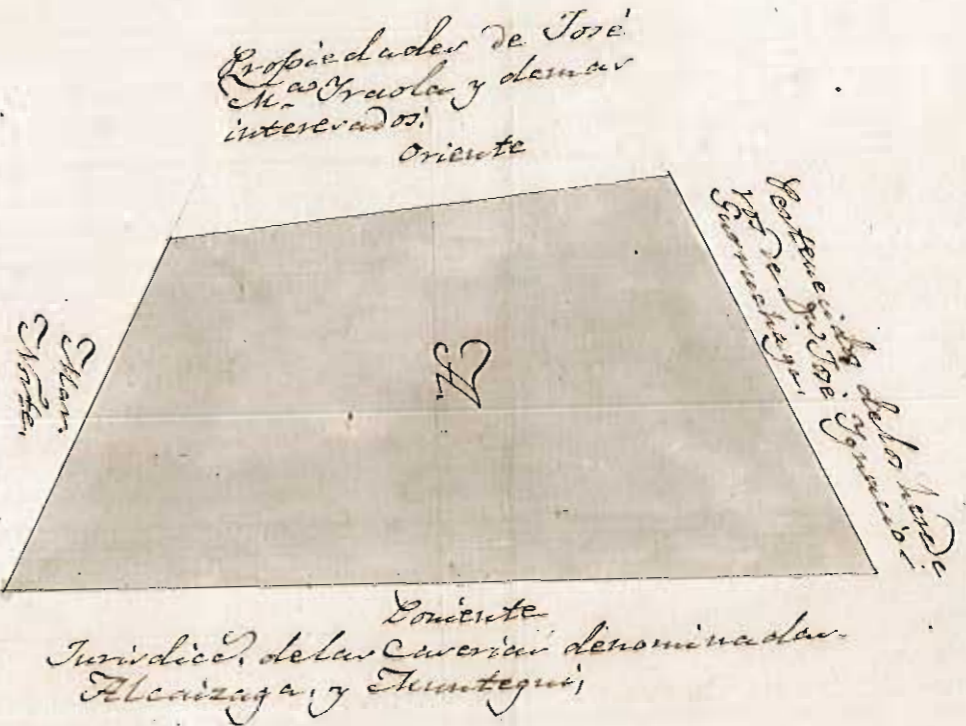 Propiedades de José
M.ª Yraola y demas
interesados;
Oriente
Pertenecido de los herede
ros de D.n José Ygnacio
Gorruchaga,
A.
Mar,
Norte,
Poniente
Jurisdicc.n de las Caserias denominadas
Alcaizaga, y Muntegui,